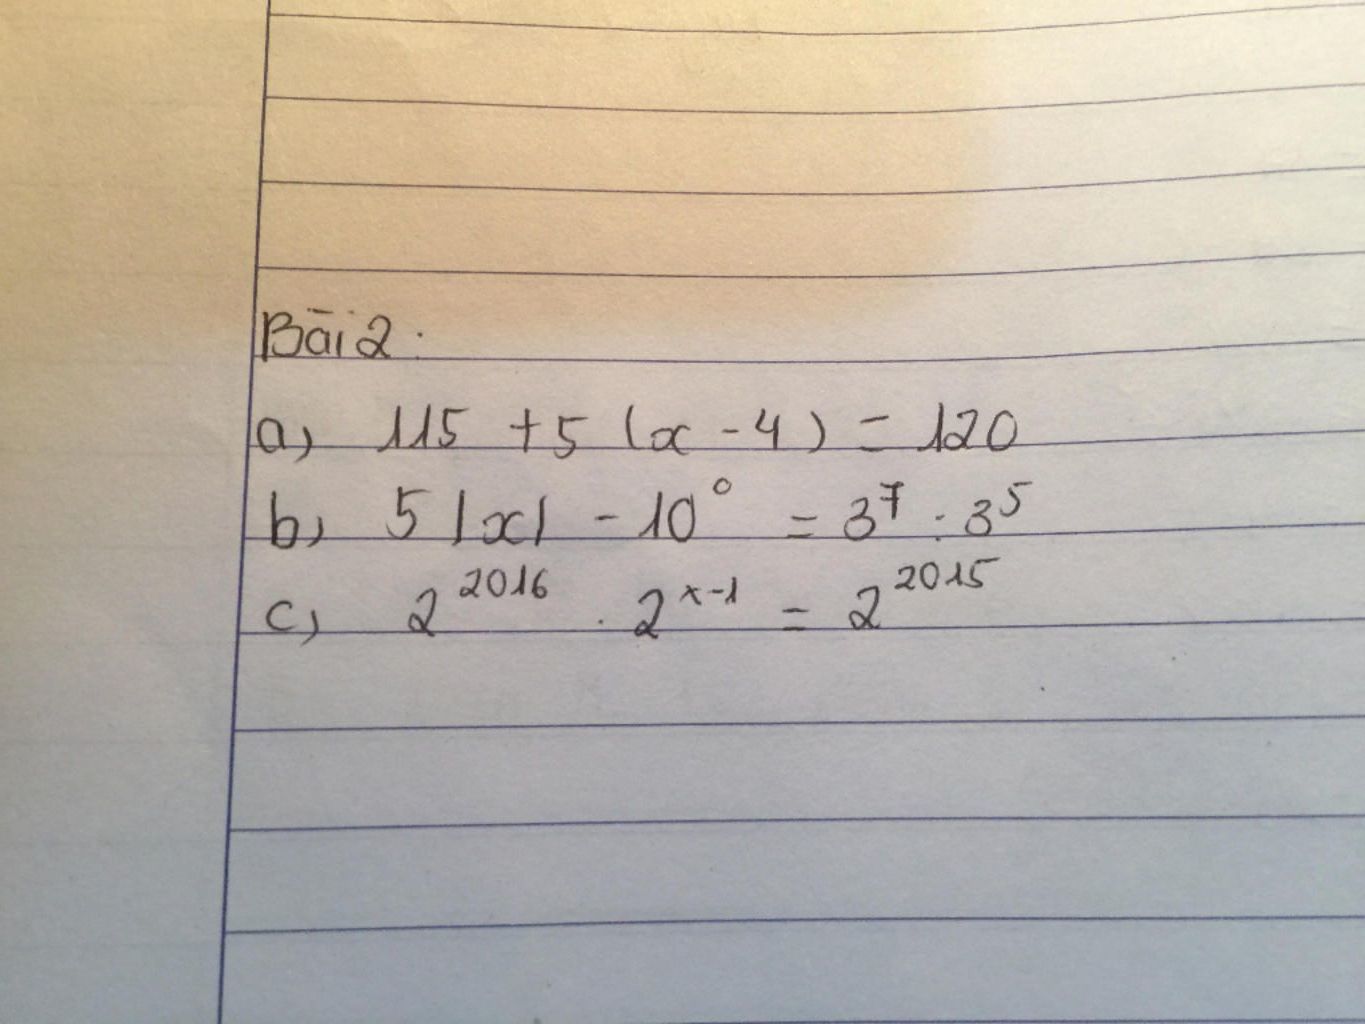 Bài 2:
a) 115 + 5 (x - 4) = 120
b) 5 |x| - 10⁰ = 3⁷ : 3⁵
c) 2²⁰¹⁶ . 2ˣ⁻¹ = 2²⁰¹⁵